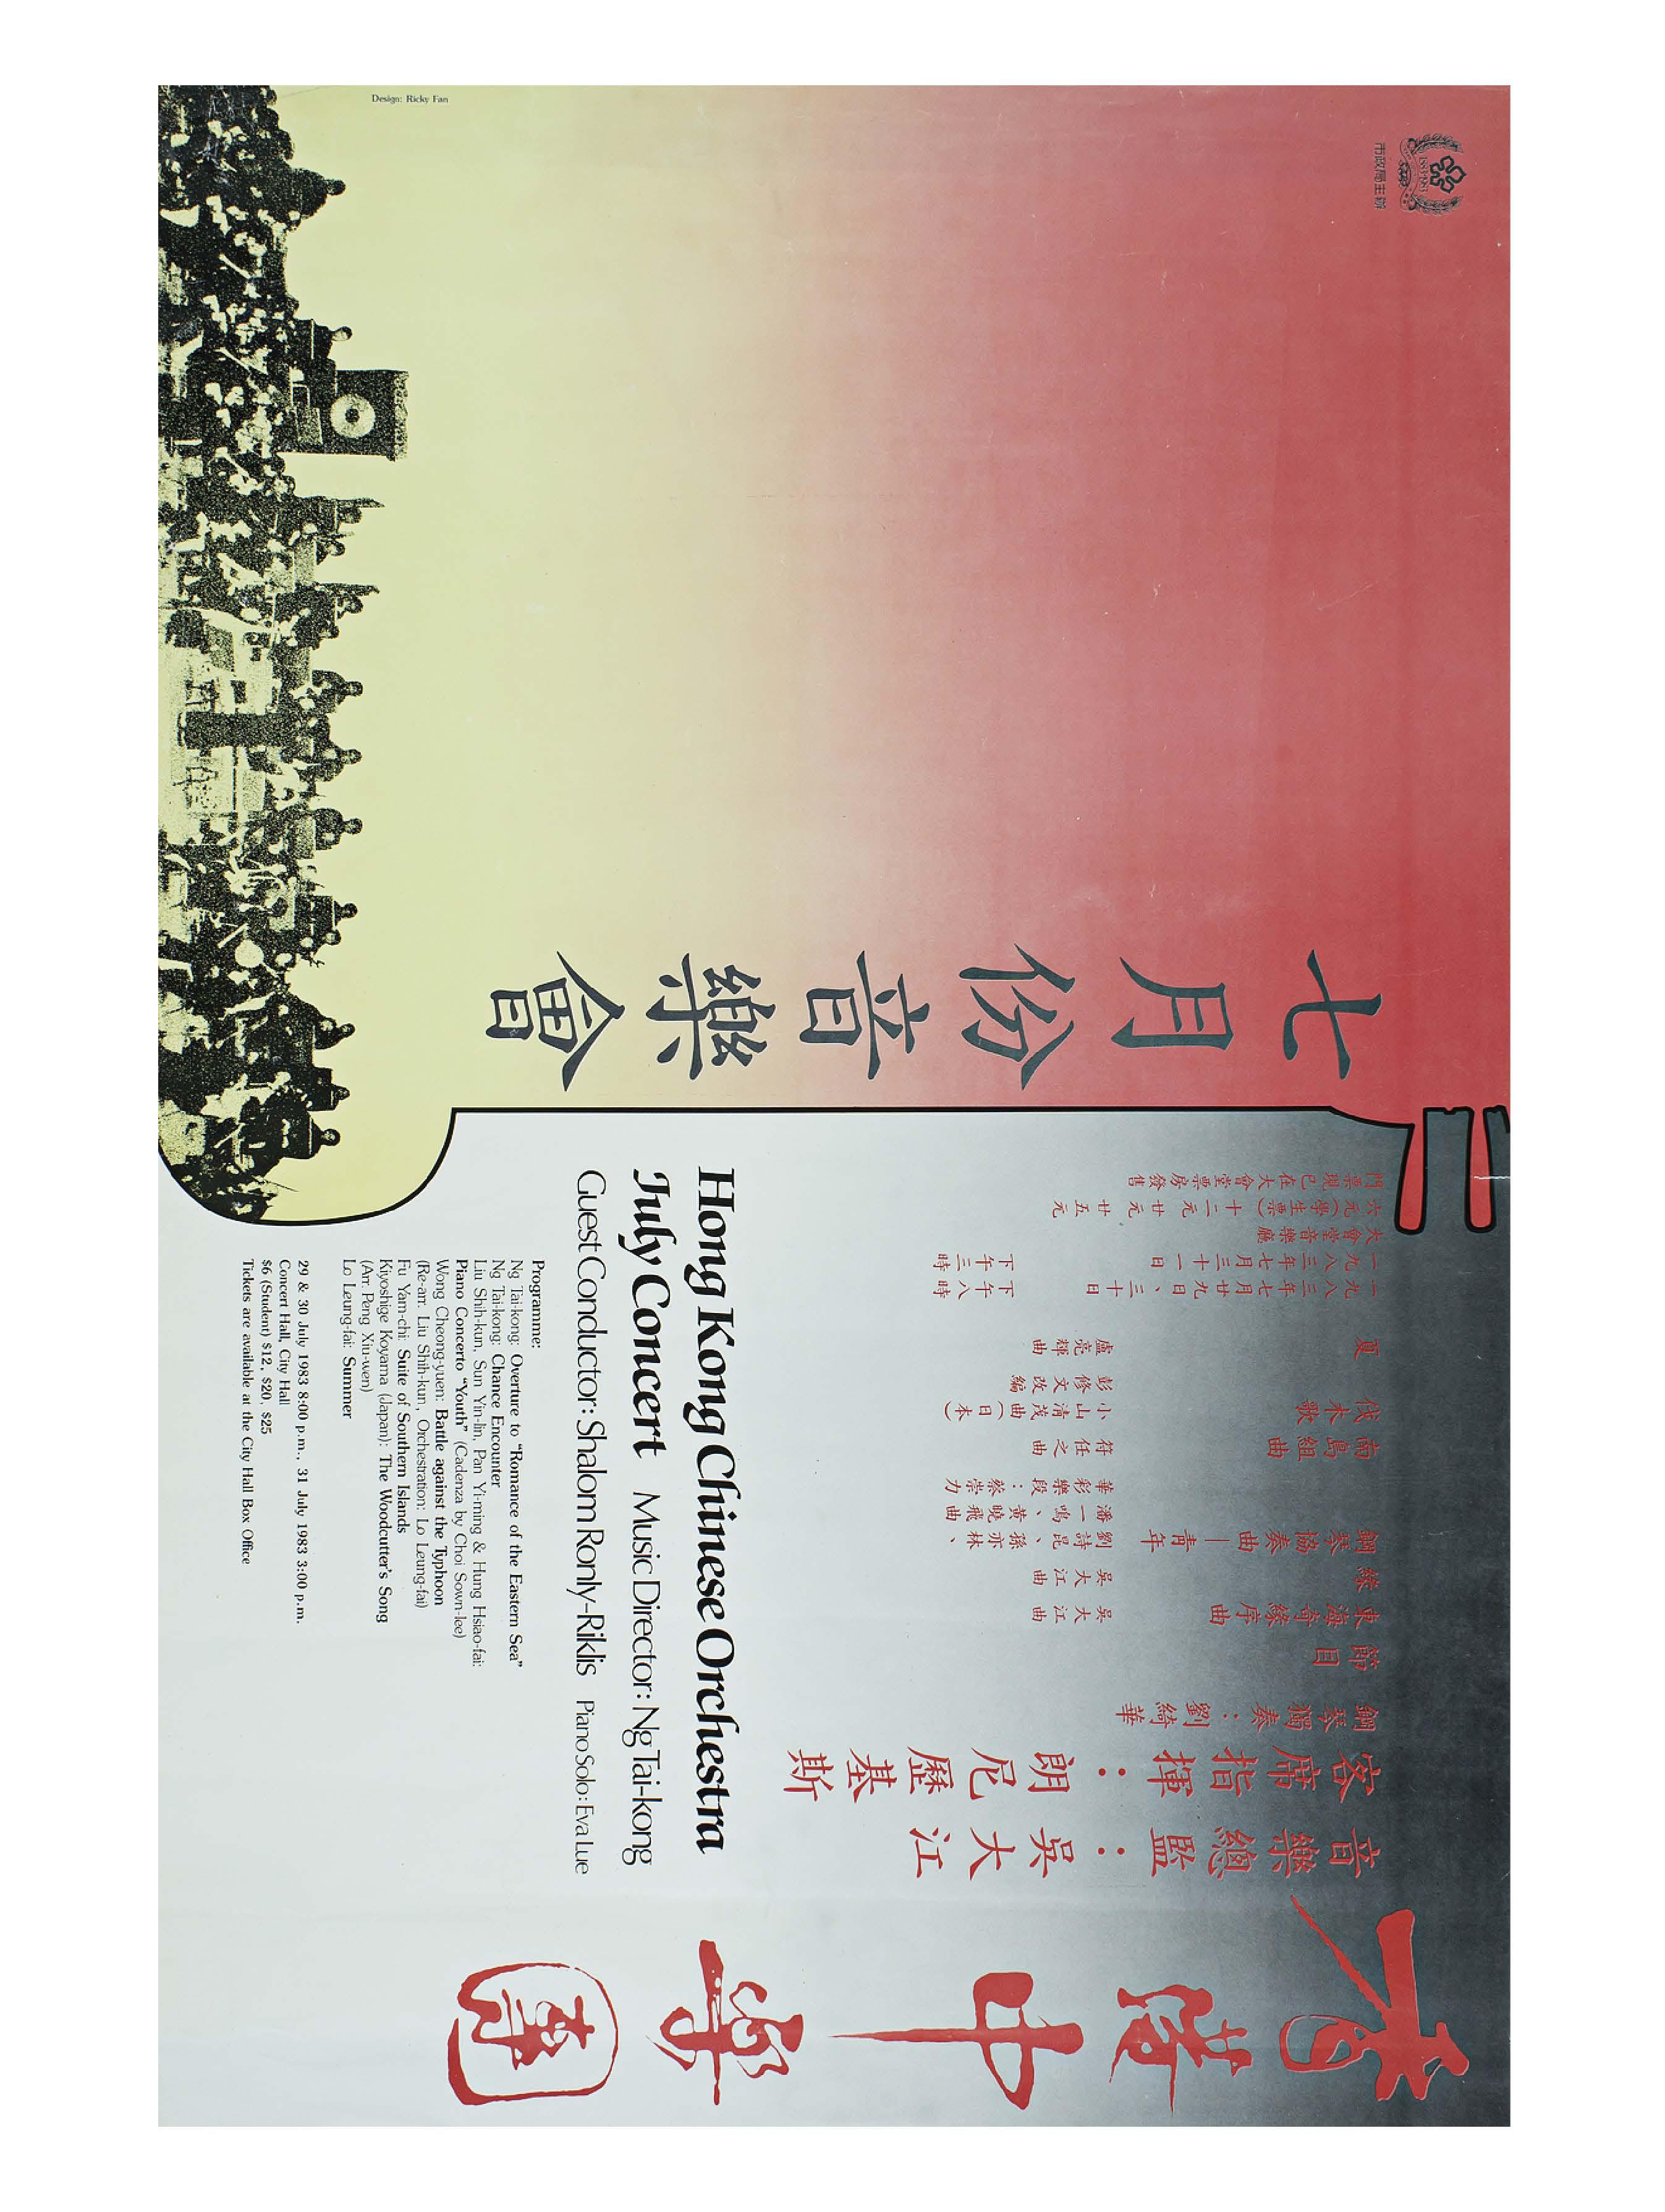 香港中樂團
音樂總監：吳大江
客席指揮：朗尼歷基斯
鋼琴獨奏：劉綺華
節目
東海奇緣序曲 吳大江曲
緣 吳大江曲
鋼琴協奏曲｜青年 劉詩昆、孫亦林、
潘一鳴、黃曉飛曲
華彩樂段：蔡崇力
南島組曲 符任之曲
伐木歌 小山清茂曲(日本)
彭修文改編
夏 盧亮輝曲
一九八三年七月廿九日、三十日 下午八時
一九八三年七月三十一日 下午三時
大會堂音樂廳
六元(學生票) 十二元 廿元 廿五元
門票現已在大會堂票房發售
七月份音樂會
1883-1983
市政局主辦
Hong Kong Chinese Orchestra
July Concert Music Director: Ng Tai-kong
Guest Conductor: Shalom Ronly-Riklis Piano Solo: Eva Lue
Programme:
Ng Tai-kong: Overture to "Romance of the Eastern Sea"
Ng Tai-kong: Chance Encounter
Liu Shih-kun, Sun Yin-lin, Pan Yi-ming & Hung Hsiao-fai:
Piano Concerto "Youth" (Cadenza by Choi Sown-lee)
Wong Cheong-yuen: Battle against the Typhoon
(Re-arr. Liu Shih-kun, Orchestration: Lo Leung-fai)
Fu Yam-chi: Suite of Southern Islands
Kiyoshige Koyama (Japan): The Woodcutter's Song
(Arr. Peng Xiu-wen)
Lo Leung-fai: Summer
29 & 30 July 1983 8:00 p.m., 31 July 1983 3:00 p.m.
Concert Hall, City Hall
$6 (Student) $12, $20, $25
Tickets are available at the City Hall Box Office
Design: Ricky Fan